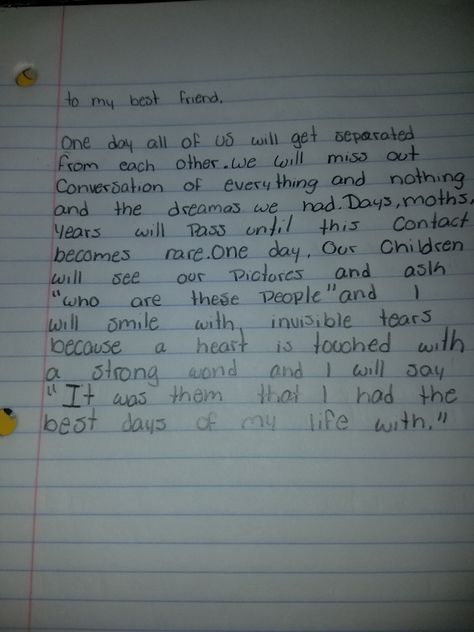 to my best friend.
One day all of us will get separated
from each other.we will miss out
Conversation of everything and nothing
and the dreamas we had.Days,moths,
years will Pass until this Contact
becomes rare.One day, Our Children
will see our Pictures and ask
"who are these People" and I
will smile with invisible tears
because a heart is touched with
a strong word and I will say
"It was them that I had the
best days of my life with."